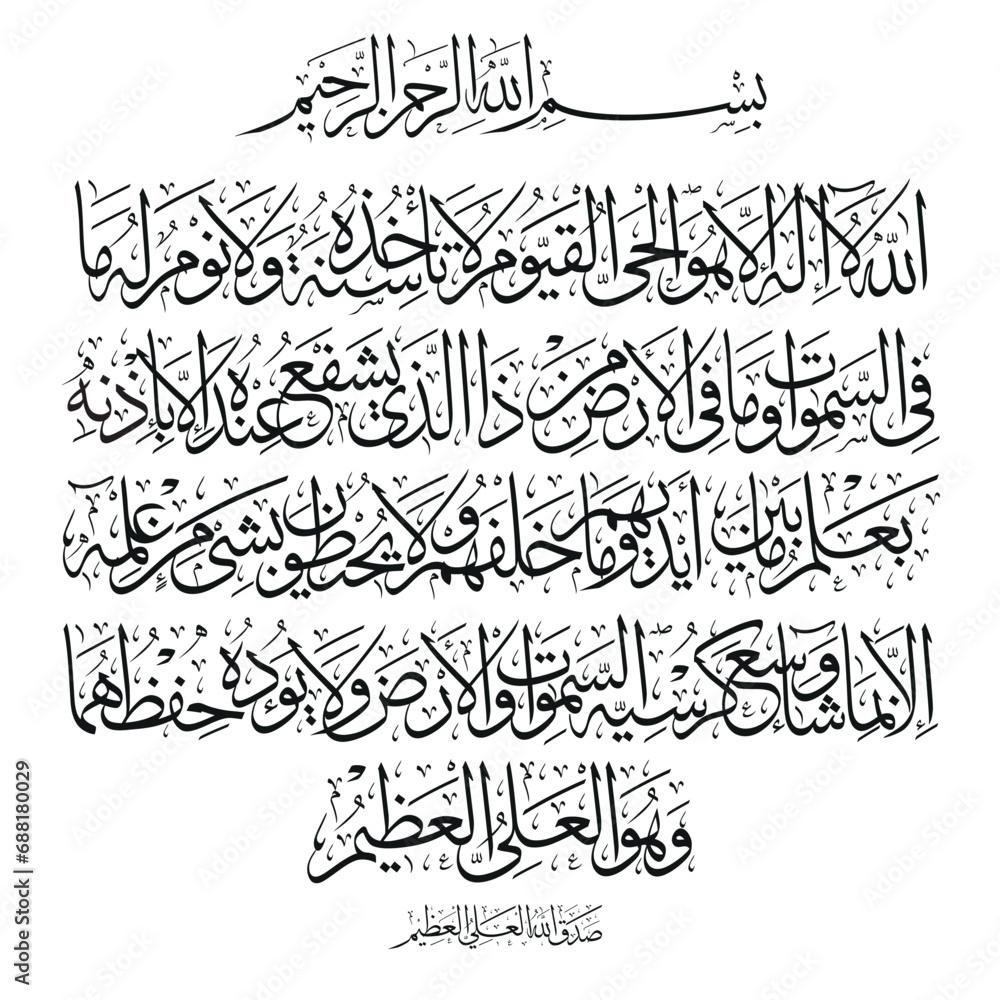 بِسْمِ اللهِ الرَّحْمٰنِ الرَّحِيْمِ
اَللهُ لَا إِلٰهَ إِلَّا هُوَ الْحَيُّ الْقَيُّوْمُ لَا تَأْخُذُهٗ سِنَةٌ وَلَا نَوْمٌ لَهٗ مَا
فِي السَّمٰوَاتِ وَمَا فِي الْأَرْضِ مَنْ ذَا الَّذِيْ يَشْفَعُ عِنْدَهٗ إِلَّا بِإِذْنِهٖ
يَعْلَمُ مَا بَيْنَ أَيْدِيْهِمْ وَمَا خَلْفَهُمْ وَلَا يُحِيْطُوْنَ بِشَيْءٍ مِنْ عِلْمِهٖ
إِلَّا بِمَا شَاءَ وَسِعَ كُرْسِيُّهُ السَّمٰوَاتِ وَالْأَرْضَ وَلَا يَؤُدُهٗ حِفْظُهُمَا
وَهُوَ الْعَلِيُّ الْعَظِيْمُ
صَدَقَ اللهُ الْعَلِيُّ الْعَظِيْمُ
Adobe Stock | #688180029